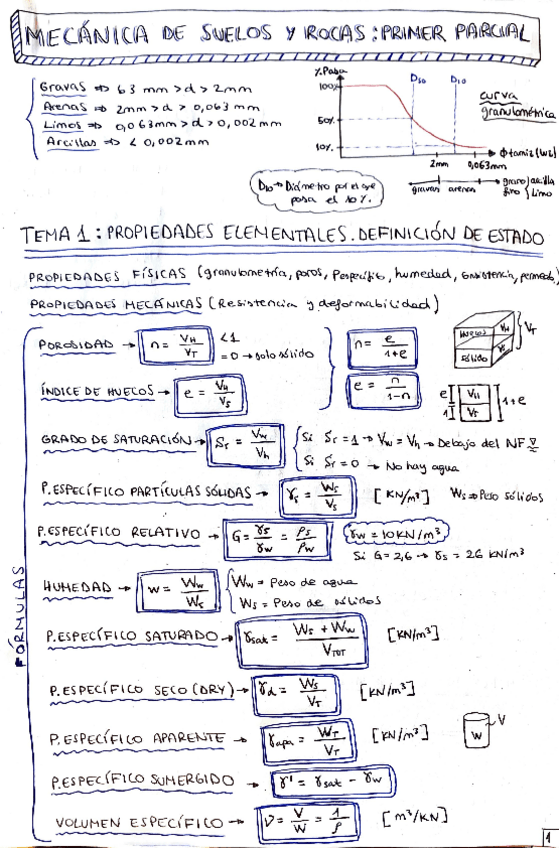 MECÁNICA DE SUELOS Y ROCAS: PRIMER PARCIAL
Gravas ⇒ 63 mm > d > 2mm
Arenas ⇒ 2mm > d > 0,063 mm
Limos ⇒ 0,063mm > d > 0,002 mm
Arcillas ⇒ < 0,002mm
% Pasa
100%
50%
10%
D50 D10
2mm 0,063mm
curva
granulométrica
gravas arenas grano fino { arcilla Limo
D10 → Diámetro por el que
pasa el 10%.
TEMA 1: PROPIEDADES ELEMENTALES. DEFINICIÓN DE ESTADO
PROPIEDADES FÍSICAS (granulometría, poros, P.específico, humedad, consistencia,
PROPIEDADES MECÁNICAS (Resistencia y deformabilidad)
FÓRMULAS
POROSIDAD → n = VH / VT <1
=0 → solo sólido
n = e / 1+e
Huecos VH
Sólido VS
VT
ÍNDICE DE HUECOS → e = VH / VS
e = n / 1-n
e VH
1 VT
1+e
GRADO DE SATURACIÓN → Sr = Vw / Vh
Si Sr = 1 → Vw = Vh → Debajo del NF
Si Sr = 0 → No hay agua
P.ESPECÍFICO PARTÍCULAS SÓLIDAS → γs = Ws / Vs [KN/m³] Ws → Peso sólidos
P.ESPECÍFICO RELATIVO → G = γs / γw = ρs / ρw γw = 10 KN/m³
Si G = 2,6 → γs = 26 KN/m³
HUMEDAD → w = Ww / Ws
Ww = Peso de agua
Ws = Peso de sólidos
P.ESPECÍFICO SATURADO → γsat = Ws + Ww / VTOT [KN/m³]
P.ESPECÍFICO SECO (DRY) → γd = Ws / VT [KN/m³]
P.ESPECÍFICO APARENTE → γapa = WT / VT [KN/m³]
W V
P.ESPECÍFICO SUMERGIDO → γ' = γsat - γw
VOLUMEN ESPECÍFICO → V = V / W = 1 / ρ [m³/KN]
1